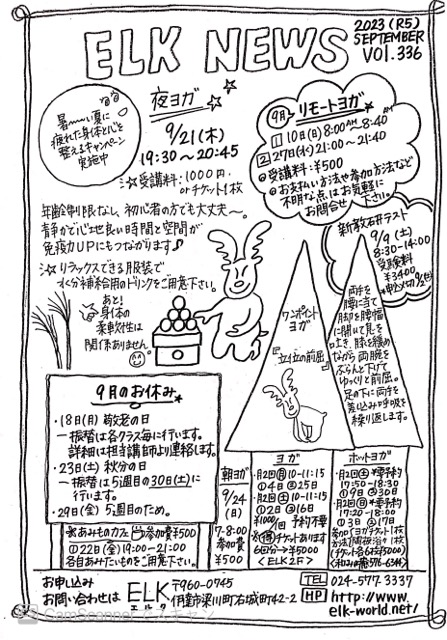 ELK NEWS
2023 (R5)
SEPTEMBER
VOl.336
暑〜い夏に
疲れた身体と心を
整えるキャンペーン
実施中
夜ヨガ
9/21(木)
19:30〜20:45
☆受講料:1000円
orチケット1枚
年齢制限なし、初心者の方でも大丈夫〜。
静かで心地良い時間と空間が
免疫力UPにもつながります♪
☆リラックスできる服装で
水分補給用のドリンクをご用意下さい。
あと!
身体の
柔軟性は
関係ありません
9月 リモートヨガ
1 10日(日)8:00AM〜8:40AM
2 27日(水)21:00〜21:40
◎受講料:¥500
◎お支払い方法や参加方法など
不明な点はお気軽に
お問合せ下さい。
9/9(土)
8:30-14:00
受験料
¥3400
ワンポイント
ヨガ
『立位の前屈』
両手を
腰に当て
脚を腰幅
に開いて息を
吐き、膝を緩め
ながら両腕を
ぶらんと下げて
ゆっくりと前屈。
足の下に両手を
差し込み呼吸を
繰り返します。
9月のお休み
・18日(月)敬老の日
ー振替は各クラス毎に行います。
詳細は担当講師より連絡します。
・23日(土)秋分の日
ー振替は5週目の30日(土)に
行います。
・29日(金)5週目のため。
※あみものカフェ 参加費¥500
①22日(金)19:00-21:00
各自あみたいものをご用意下さい。
朝ヨガ
9/24
(日)
7-8:00
参加費
¥500
ヨガ
・月2回(月)10-11:15
①4日②25日
・月2回(土)10-11:15
①2日②16日
¥1000/1回 予約不要
チケットあります
6回分→¥5000
<ELK2F>
ホットヨガ
・月2回(土)※要予約
17:50-18:30
①9日②30日
・月2回(日)※要予約
17:20-18:00
①3日②17日
お申し込み
お問い合わせは
ELK
エルク
〒960-0745
伊達市梁川町右城町42-2
TEL 024-577-3337
HP http://www.
elk-world.net/
CamScannerでスキャン